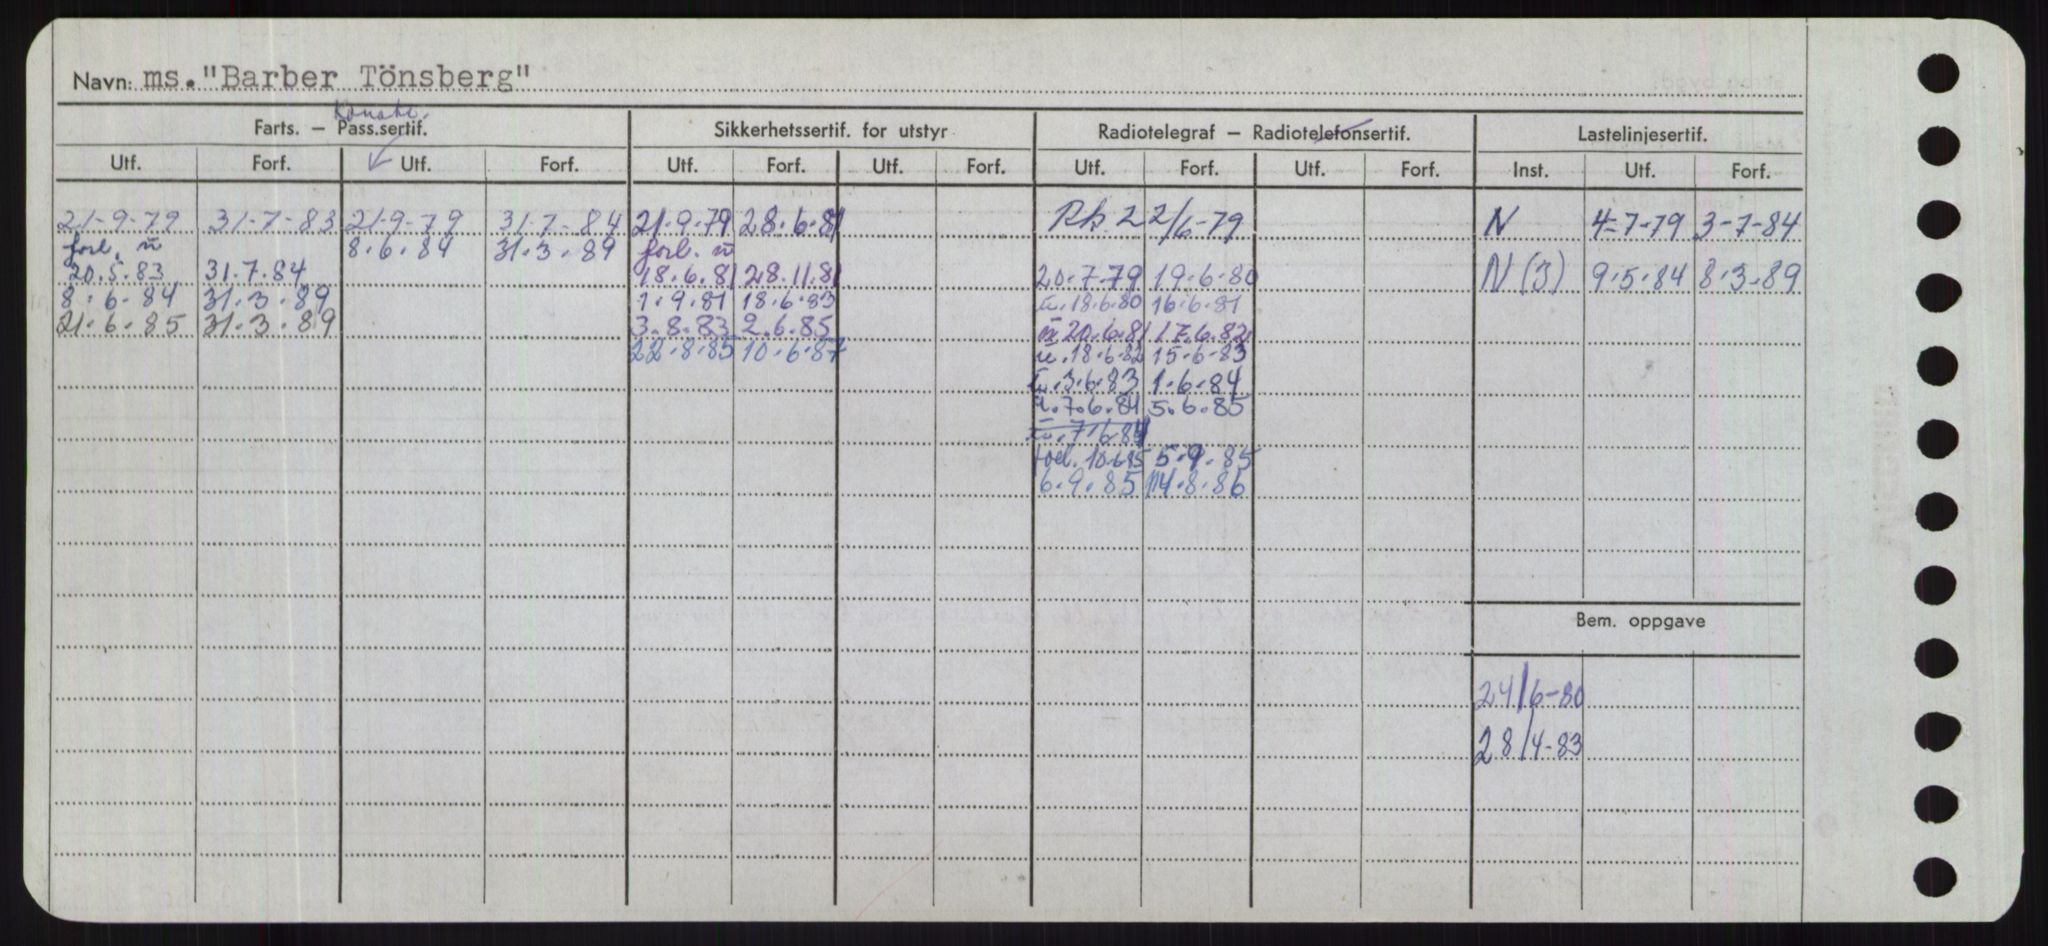 Navn: ms. "Barber Tönsberg"
Konstr.
Farts. — Pass.sertif. Sikkerhetssertif. for utstyr Radiotelegraf — Radiotelefonsertif. Lastelinjesertif.
Utf. Forf. Utf. Forf. Utf. Forf. Utf. Forf. Utf. Forf. Utf. Forf. Inst. Utf. Forf.
21-9-79 31-7-83 21-9-79 31-7-84 21.9.79 28.6.81 Rk. 2 2/6-79 N 4-7-79 3-7-84
forl. 8.6.84 31.3.89 forl.
20.5.83 31.7.84 18.6.81 28.11.81 20.7.79 19.6.80 N (3) 9.5.84 8.3.89
8.6.84 31.3.89 1.9.81 18.6.83 18.6.80 16.6.81
21.6.85 31.3.89 3.8.83 2.6.85 20.6.81 17.6.82
22.8.85 10.6.87 18.6.82 15.6.83
3.6.83 1.6.84
7.6.84 5.6.85
7.6.84
10.6.85 5.9.85
6.9.85 14.8.86
Bem. oppgave
24/6-80
28/4-83